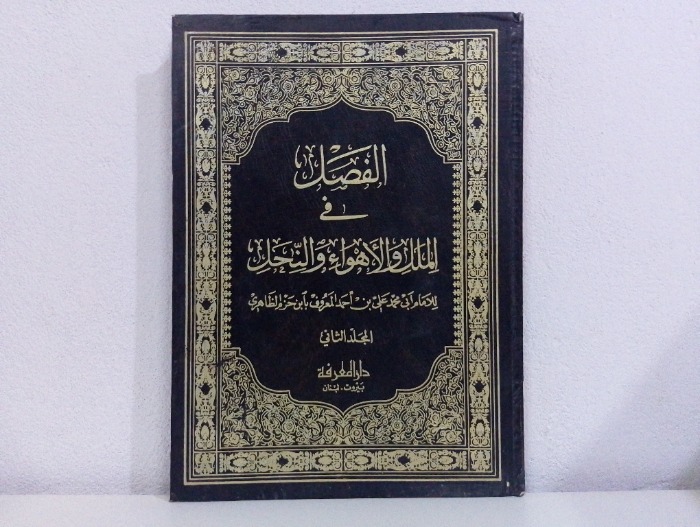 الفصل
في
الملل والأهواء والنحل
للامام أبي محمد علي بن أحمد المعروف بابن حزم الظاهري
المجلد الثاني
دار المعرفة
بيروت - لبنان